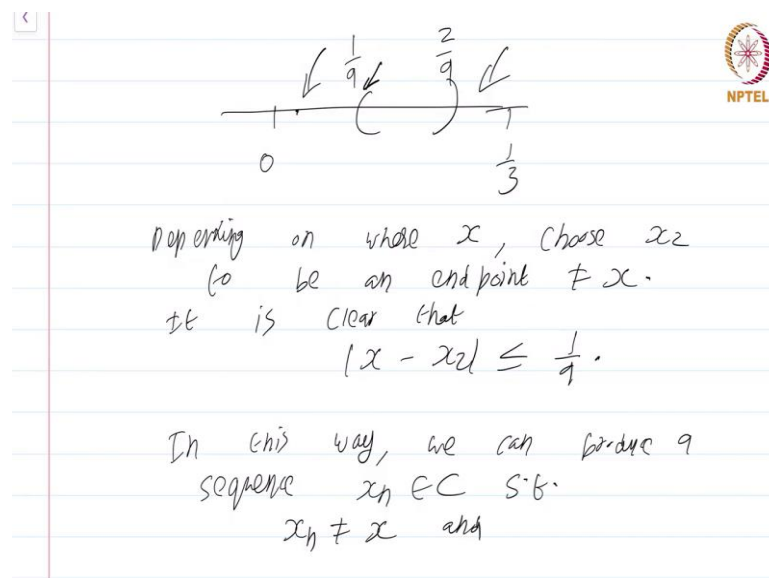 1/9 2/9
NPTEL
0 1/3
Depending on where x, choose x₂
to be an endpoint ≠ x.
It is clear that
|x - x₂| ≤ 1/9.
In this way, we can produce a
sequence xₙ ∈ C s.t.
xₙ ≠ x and